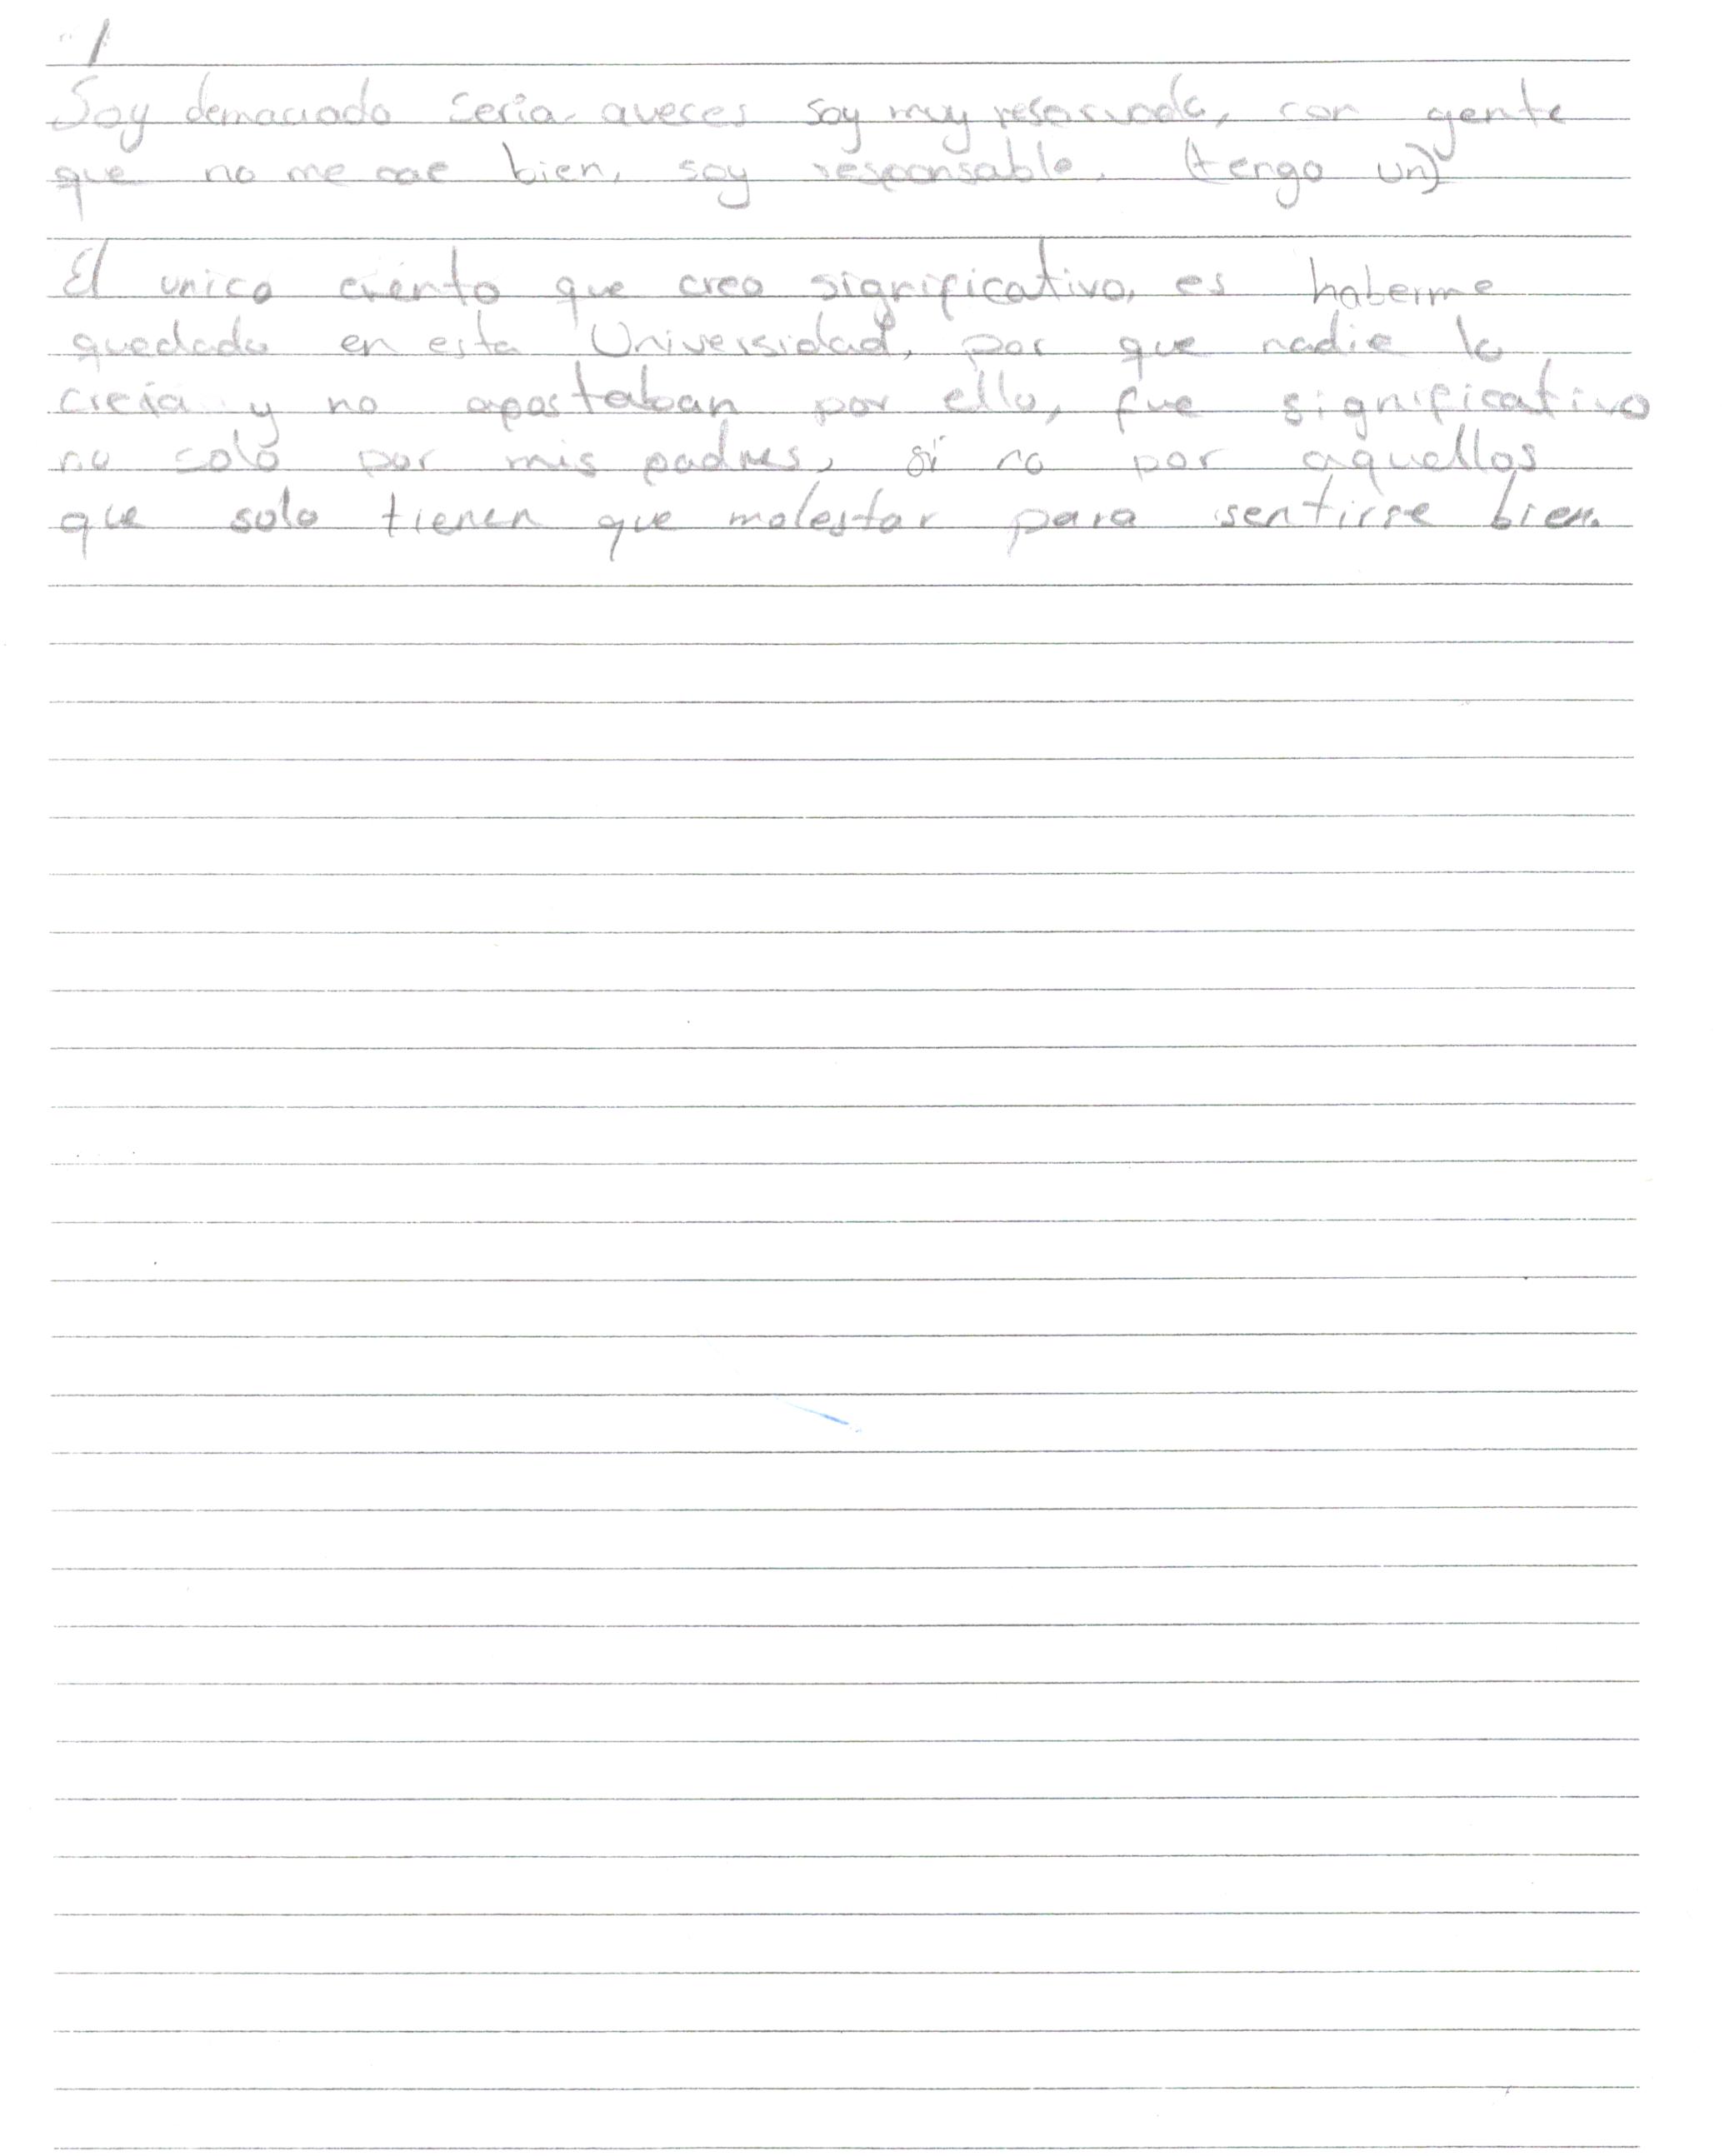 Soy demaciado seria. aveces soy muy reservada, con gente
que no me cae bien, soy responsable. (tengo un)
El unico evento que creo significativo, es haberme
quedado en esta Universidad, por que nadie lo
creía y no apostaban por ello, fue significativo
no solo por mis padres, si no por aquellos
que solo tienen que molestar para sentirse bien.